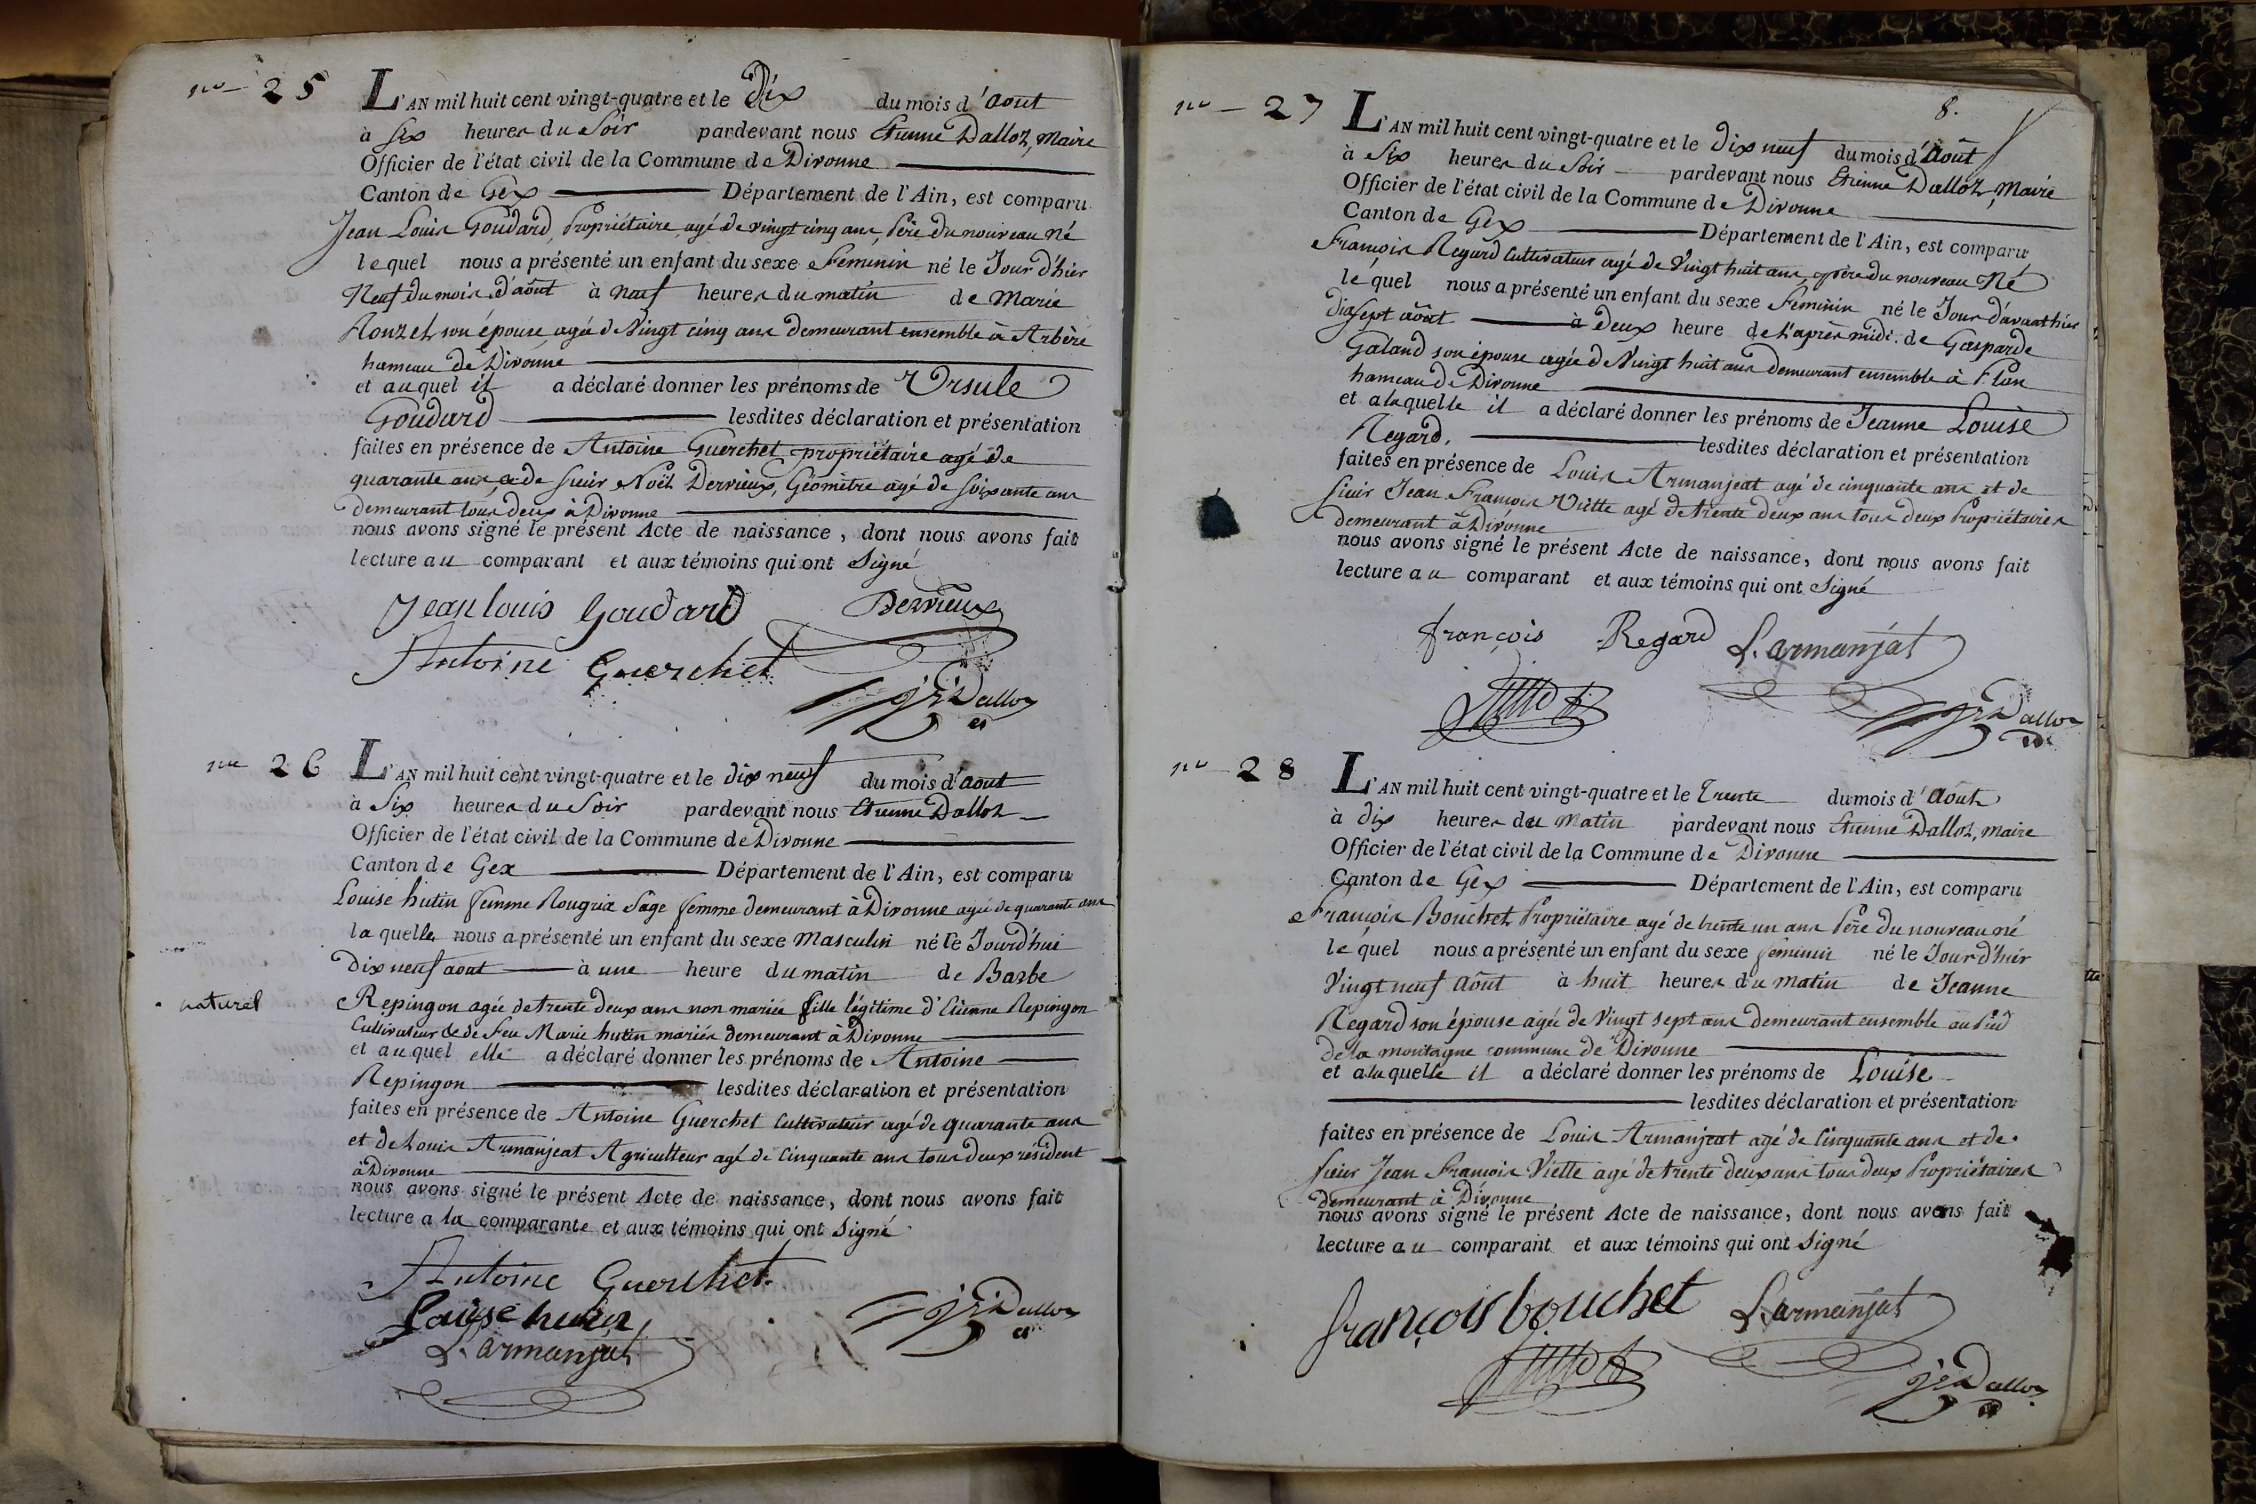 no 25
L'AN mil huit cent vingt-quatre et le Dix du mois d'Aout
à Six heures du Soir pardevant nous Etienne Dalloz, Maire
Officier de l'état civil de la Commune de Divonne
Canton de Gex Département de l'Ain, est comparu
Jean Louis Goudard, Propriétaire agé de vingt cinq ans, Père du nouveau né
lequel nous a présenté un enfant du sexe Feminin né le Jour d'hier
Neuf du mois d'août à Neuf heures du matin de Marie
son épouse, agée de Vingt cinq ans demeurant ensemble à Arbère
hameau de Divonne
et auquel il a déclaré donner les prénoms de Ursule
Goudard lesdites déclaration et présentation
faites en présence de Antoine Guerchet propriétaire agé de
quarante ans, & de sieur Noël Dervieux, Géomètre agé de soixante ans
demeurant tous deux à Divonne
nous avons signé le présent Acte de naissance, dont nous avons fait
lecture au comparant et aux témoins qui ont Signé
Jean louis Goudard Dervieux
Antoine Guerchet
Dalloz
no 26
L'AN mil huit cent vingt-quatre et le dix neuf du mois d'aout
à Six heures du Soir pardevant nous Etienne Dalloz
Officier de l'état civil de la Commune de Divonne
Canton de Gex Département de l'Ain, est comparu
Louise hutin femme Rougrix Sage femme demeurant à Divonne agée de quarante ans
la quelle nous a présenté un enfant du sexe Masculin né le Jourd'hui
Dix neuf aout à une heure du matin de Barbe
naturel
Repingon agée de trente deux ans non mariée fille légitime d'Etienne Repingon
Cultivateur & de Feu Marie hutin mariés demeurant à Divonne
et auquel elle a déclaré donner les prénoms de Antoine
Repingon lesdites déclaration et présentation
faites en présence de Antoine Guerchet Cultivateur agé de quarante ans
et de Louis Armanjeat Agriculteur agé de Cinquante ans tous deux résident
à Divonne
nous avons signé le présent Acte de naissance, dont nous avons fait
lecture a la comparante et aux témoins qui ont Signé
Antoine Guerchet
Louise hutin
L. armanjat
Dalloz
8.
no 27
L'AN mil huit cent vingt-quatre et le dix neuf du mois d'Août
à Six heures du Soir pardevant nous Etienne Dalloz, Maire
Officier de l'état civil de la Commune de Divonne
Canton de Gex Département de l'Ain, est comparu
François Regard Cultivateur agé de Vingt huit ans, père du nouveau Né
le quel nous a présenté un enfant du sexe Féminin né le Jour d'avant hier
dix sept août à deux heure de l'après midi. de Gasparde
Galand son épouse agée de Vingt huit ans demeurant ensemble à Flon
hameau de Divonne
et a laquelle il a déclaré donner les prénoms de Jeanne Louise
Regard. lesdites déclaration et présentation
faites en présence de Louis Armanjeat agé de cinquante ans et de
sieur Jean François Viette agé de trente deux ans tous deux Propriétaires
demeurant à Divonne
nous avons signé le présent Acte de naissance, dont nous avons fait
lecture au comparant et aux témoins qui ont Signé
françois Regard L. armanjat
Dalloz
no 28
L'AN mil huit cent vingt-quatre et le Trente du mois d'Août
à dix heures du matin pardevant nous Etienne Dalloz, maire
Officier de l'état civil de la Commune de Divonne
Canton de Gex Département de l'Ain, est comparu
François Bouchet Propriétaire agé de trente un ans Père du nouveau né
le quel nous a présenté un enfant du sexe féminin né le Jour d'hier
Vingt neuf Août à huit heures du matin de Jeanne
Regard son épouse agée de Vingt sept ans demeurant ensemble au Pied
de la montagne commune de Divonne
et a la quelle il a déclaré donner les prénoms de Louise
lesdites déclaration et présentation
faites en présence de Louis Armanjeat agé de Cinquante ans et de
sieur Jean François Viette agé de trente deux ans tous deux Propriétaires
demeurant à Divonne
nous avons signé le présent Acte de naissance, dont nous avons fait
lecture au comparant et aux témoins qui ont Signé
françois bouchet L. armanjat
Dalloz